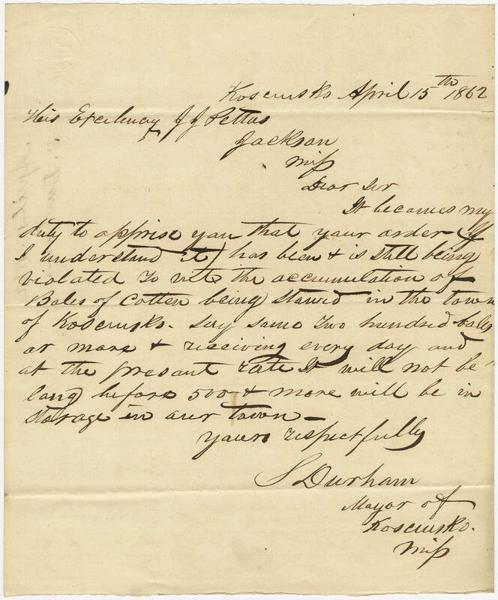 Kosciusko April 15th 1862
His Excelency J J Pettus
Jackson
Miss
Dear Sir
It becomes my
duty to apprise you that your order (If
I understand it) has been & is still being
violated To wit the accumulation of
Bales of Cotten being stawed in the town
of Kosciusko. Say some Two hundred bales
or more & receiving every day and
at the presant rate It will not be
long before 500 & more will be in
storage in our town—
yours respectfully
S Durham
Mayor of
Kosciusko.
Miss